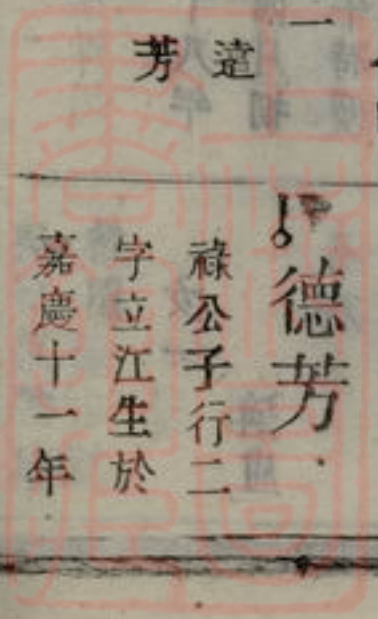 一
遠
芳
德芳
祿公子行二
字立江生於
嘉慶十一年